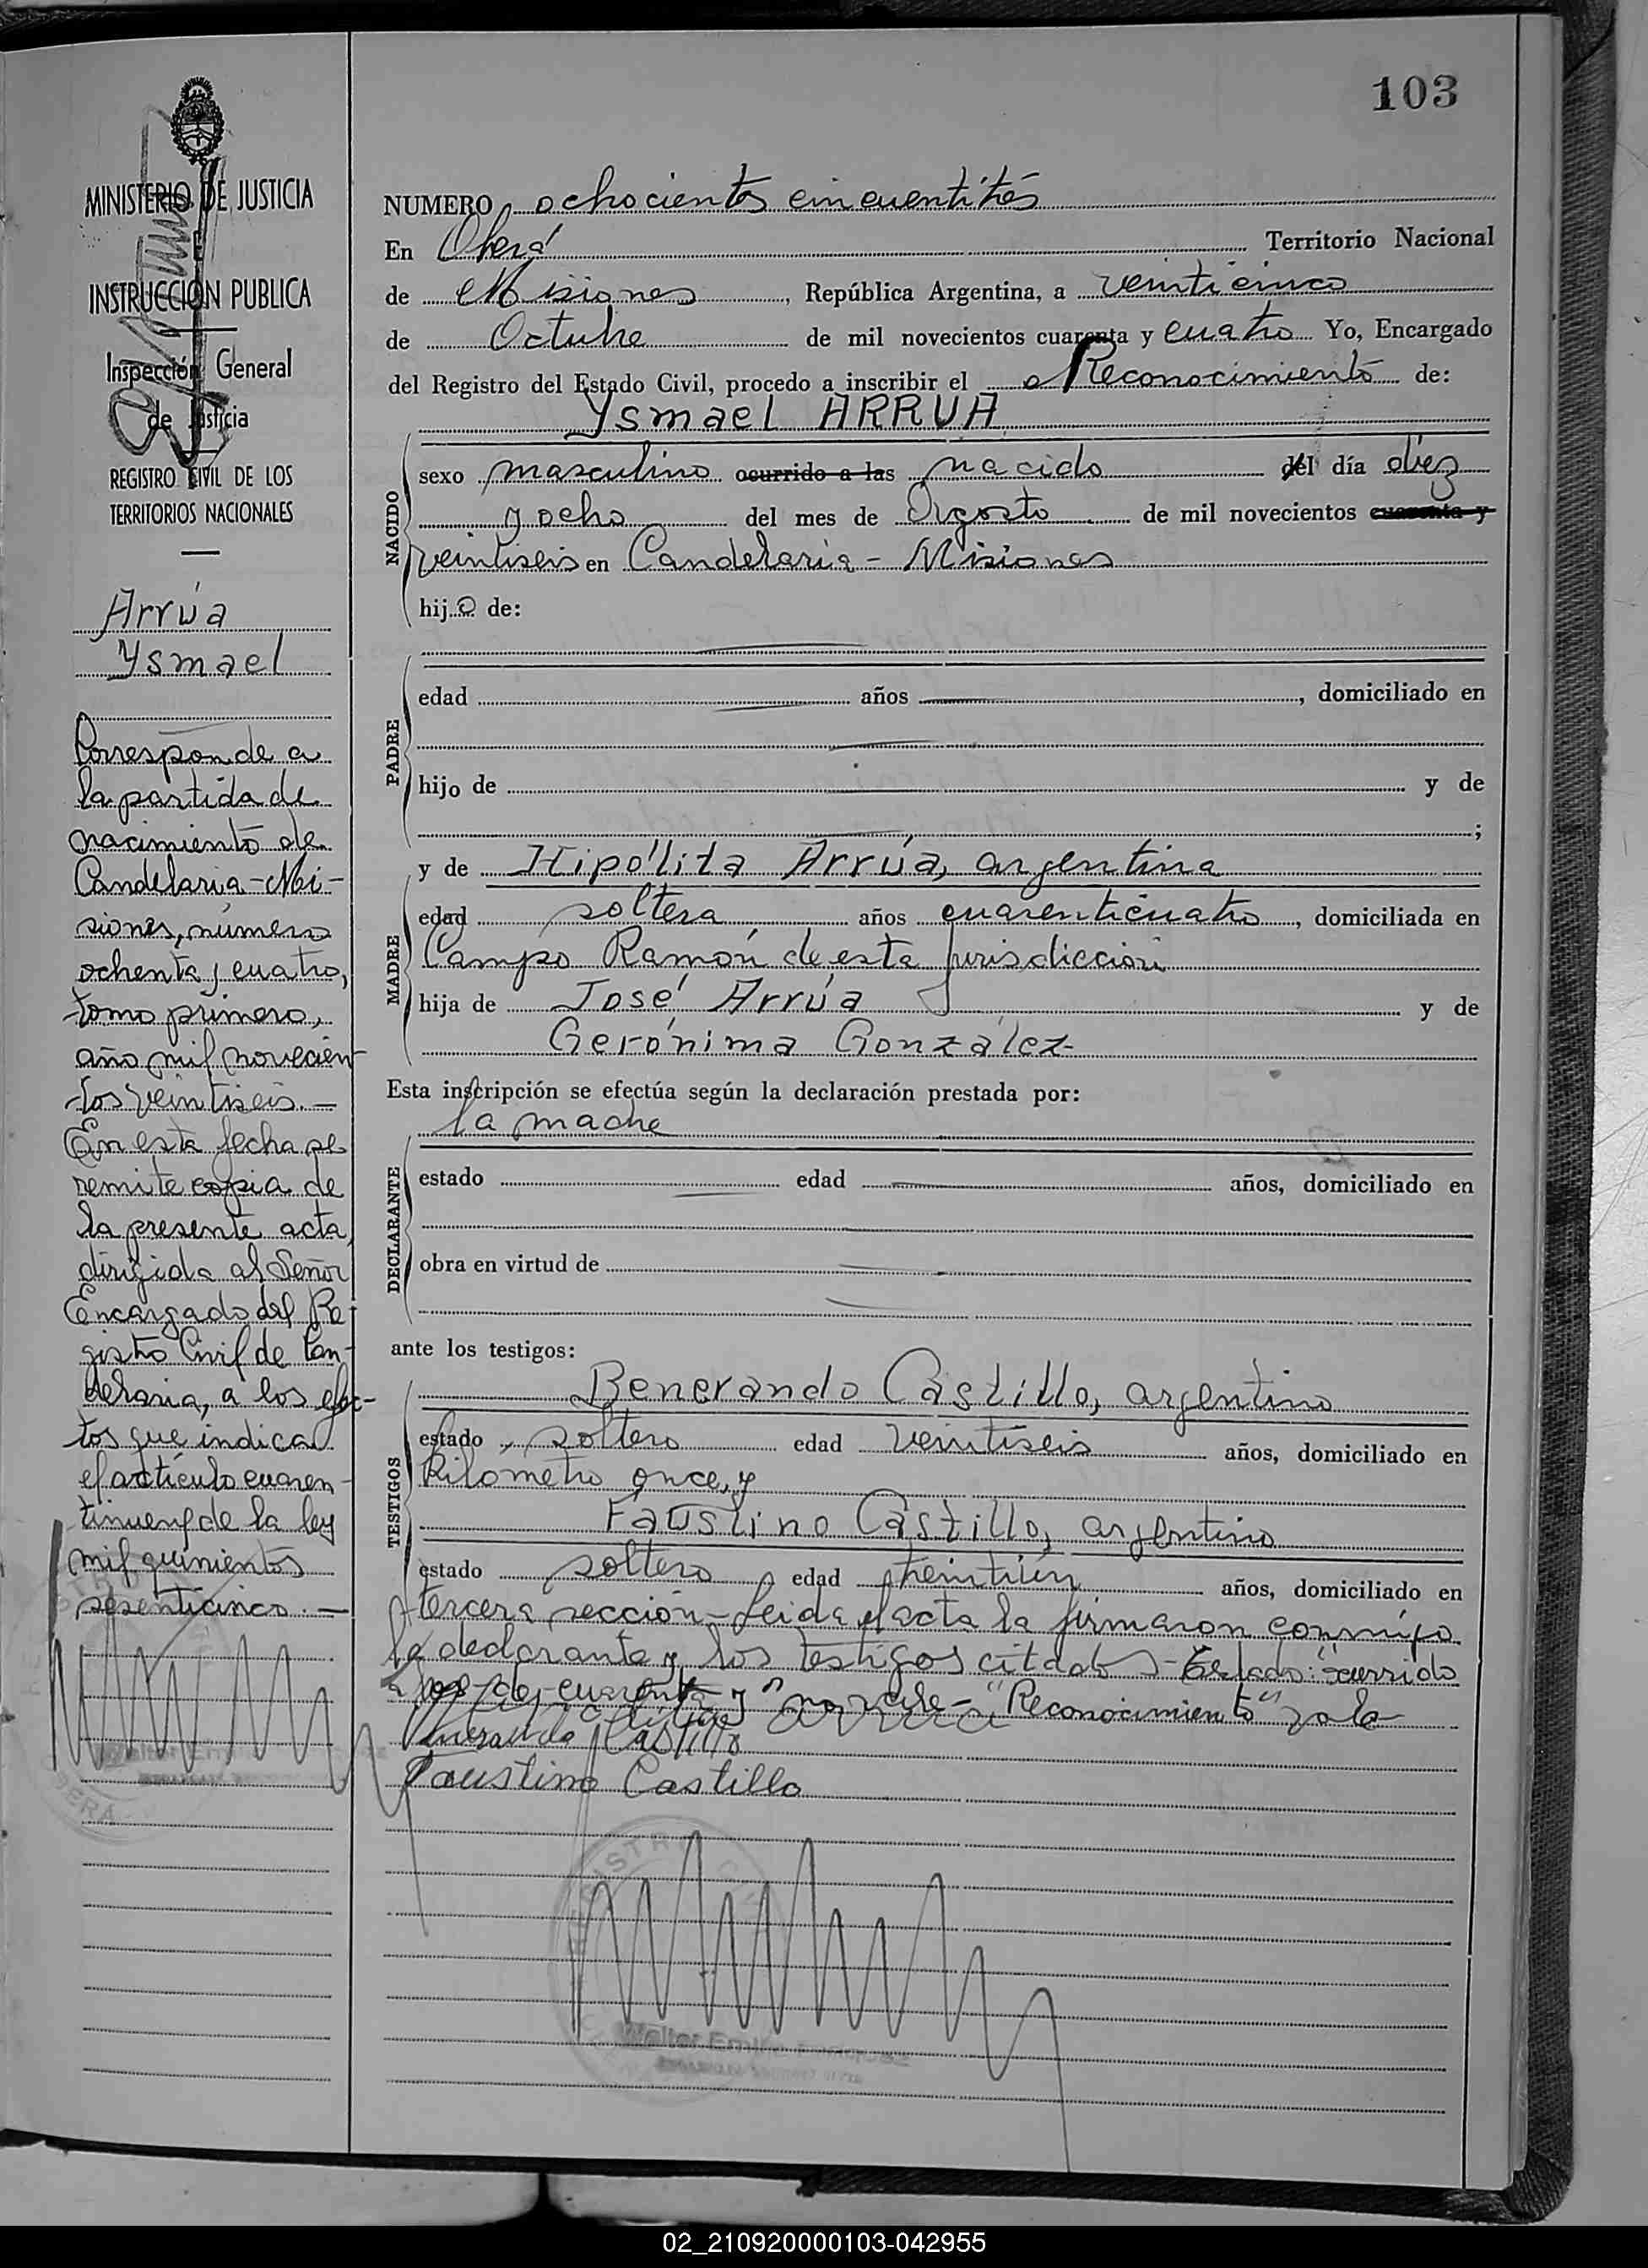 103
MINISTERIO DE JUSTICIA
E
INSTRUCCION PUBLICA
Inspección General
de Justicia
REGISTRO CIVIL DE LOS
TERRITORIOS NACIONALES
Arrúa
Ysmael
Corresponde a
la partida de
nacimiento de
Candelaria-Mi-
siones, número
ochenta y cuatro,
tomo primero,
año mil novecien-
tos veintiseis.-
En esta fecha se
remite copia de
la presente acta,
dirigida al Señor
Encargado del Re-
gistro Civil de Can-
delaria, a los efec-
tos que indica
el artículo cuaren-
tinueve de la ley
mil quinientos
sesenticinco.-
NUMERO ochocientos cincuentitrés
En Oberá Territorio Nacional
de Misiones, República Argentina, a veinticinco
de Octubre de mil novecientos cuarenta y cuatro Yo, Encargado
del Registro del Estado Civil, procedo a inscribir el Reconocimiento de:
Ysmael ARRUA
NACIDO
sexo masculino ocurrido a las nacido el día diez
y ocho del mes de Agosto de mil novecientos cuarenta y
veintiseis en Candelaria - Misiones
hijo de:
PADRE
edad años , domiciliado en
hijo de y de
;
MADRE
y de Hipólita Arrúa, argentina
edad soltera años cuarenticuatro, domiciliada en
Campo Ramón de esta jurisdicción
hija de José Arrúa y de
Gerónima González
Esta inscripción se efectúa según la declaración prestada por:
la madre
DECLARANTE
estado edad años, domiciliado en
obra en virtud de
ante los testigos:
TESTIGOS
Benerando Castillo, argentino
estado soltero edad veintiseis años, domiciliado en
Kilometro once, y
Faustino Castillo, argentino
estado soltero edad años, domiciliado en
tercera sección - Leida el acta la firmaron conmigo
la declarante y los testigos citados - Testado: "ocurrido
a las-de, cuarenta y" no vale - "Reconocimiento" vale
Castillo
Faustino Castillo
Walter
02_210920000103-042955